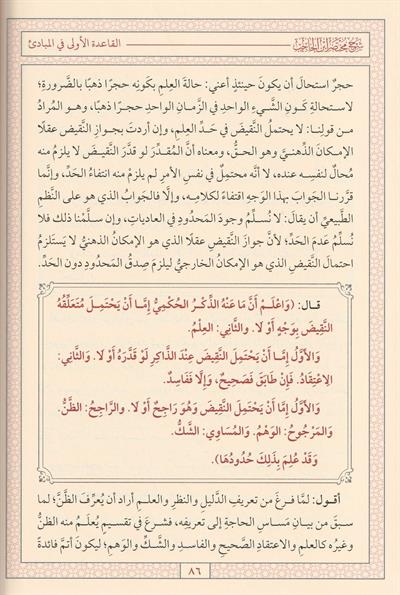 القاعدة الأولى في المبادئ
شرح مختصر ابن الحاجب
حجرٌ استحالَ أن يكونَ حينئذٍ أعني: حالةَ العِلمِ بكَونِه حجرًا ذهبًا بالضَّرورةِ؛
لاستحالةِ كَونِ الشَّيءِ الواحدِ في الزَّمانِ الواحدِ حجرًا ذهبًا، وهو المُرادُ
من قولِنا: لا يحتملُ النَّقيضَ في حَدِّ العِلمِ، وإن أردتَ بجوازِ النَّقيضِ عقلًا
الإمكانَ الذِّهنيَّ وهو الحقُّ، ومعناه أنَّ المُقدَّرَ لو قدَّرَ النَّقيضَ لا يلزمُ منه
مُحالٌ لنفسِه عنده، لا أنَّه محتملٌ في نفسِ الأمرِ لم يلزم منه انتفاءُ الحَدِّ، وإنَّما
قرَّرنا الجَوابَ بهذا الوَجهِ اقتفاءً لكلامِه، وإلَّا فالجَوابُ الذي هو على النَّظمِ
الطَّبيعيِّ أن يقالَ: لا نُسلِّمُ وجودَ المَحدُودِ في العادياتِ، وإن سلَّمْنا ذلك فلا
نُسلِّمُ عَدمَ الحَدِّ؛ لأنَّ جوازَ النَّقيضِ عقلًا الذي هو الإمكانُ الذهنيُّ لا يَستلزمُ
احتمالَ النَّقيضِ الذي هو الإمكانُ الخارجيُّ ليلزمَ صِدقُ المَحدودِ دون الحَدِّ.
قـال: (وَاعْلَمْ أَنَّ مَا عَنْهُ الذِّكْرُ الحُكْمِيُّ إِمَّا أَنْ يَحْتَمِلَ مُتَعَلَّقُهُ
النَّقِيضَ بِوَجْهٍ أَوْ لَا. والثَّانِي: العِلْمُ.
وَالأَوَّلُ إِمَّا أَنْ يَحْتَمِلَ النَّقِيضَ عِنْدَ الذَّاكِرِ لَوْ قَدَّرَهُ أَوْ لَا. وَالثَّانِي:
الِاعْتِقَادُ. فَإِنْ طَابَقَ فَصَحِيحٌ، وَإِلَّا فَفَاسِدٌ.
وَالأَوَّلُ إِمَّا أَنْ يَحْتَمِلَ النَّقِيضَ وَهُوَ رَاجِحٌ أَوْ لَا. والرَّاجِحُ: الظَّنُّ.
وَالمَرْجُوحُ: الوَهْمُ. وَالمُسَاوِي: الشَّكُّ.
وَقَدْ عُلِمَ بِذَلِكَ حُدُودُهَا).
أقـول: لمَّا فرغَ من تعريفِ الدَّليلِ والنظرِ والعلمِ أرادَ أن يُعرِّفَ الظَّنَّ؛ لما
سبقَ من بيانِ مَساسِ الحاجةِ إلى تعريفِه، فشرعَ في تقسيمٍ يُعلَمُ منه الظنُّ
وغيرُه كالعلمِ والاعتقادِ الصَّحيحِ والفاسدِ والشَّكِّ والوَهمِ؛ ليكونَ أتمَّ فائدةً
٨٦